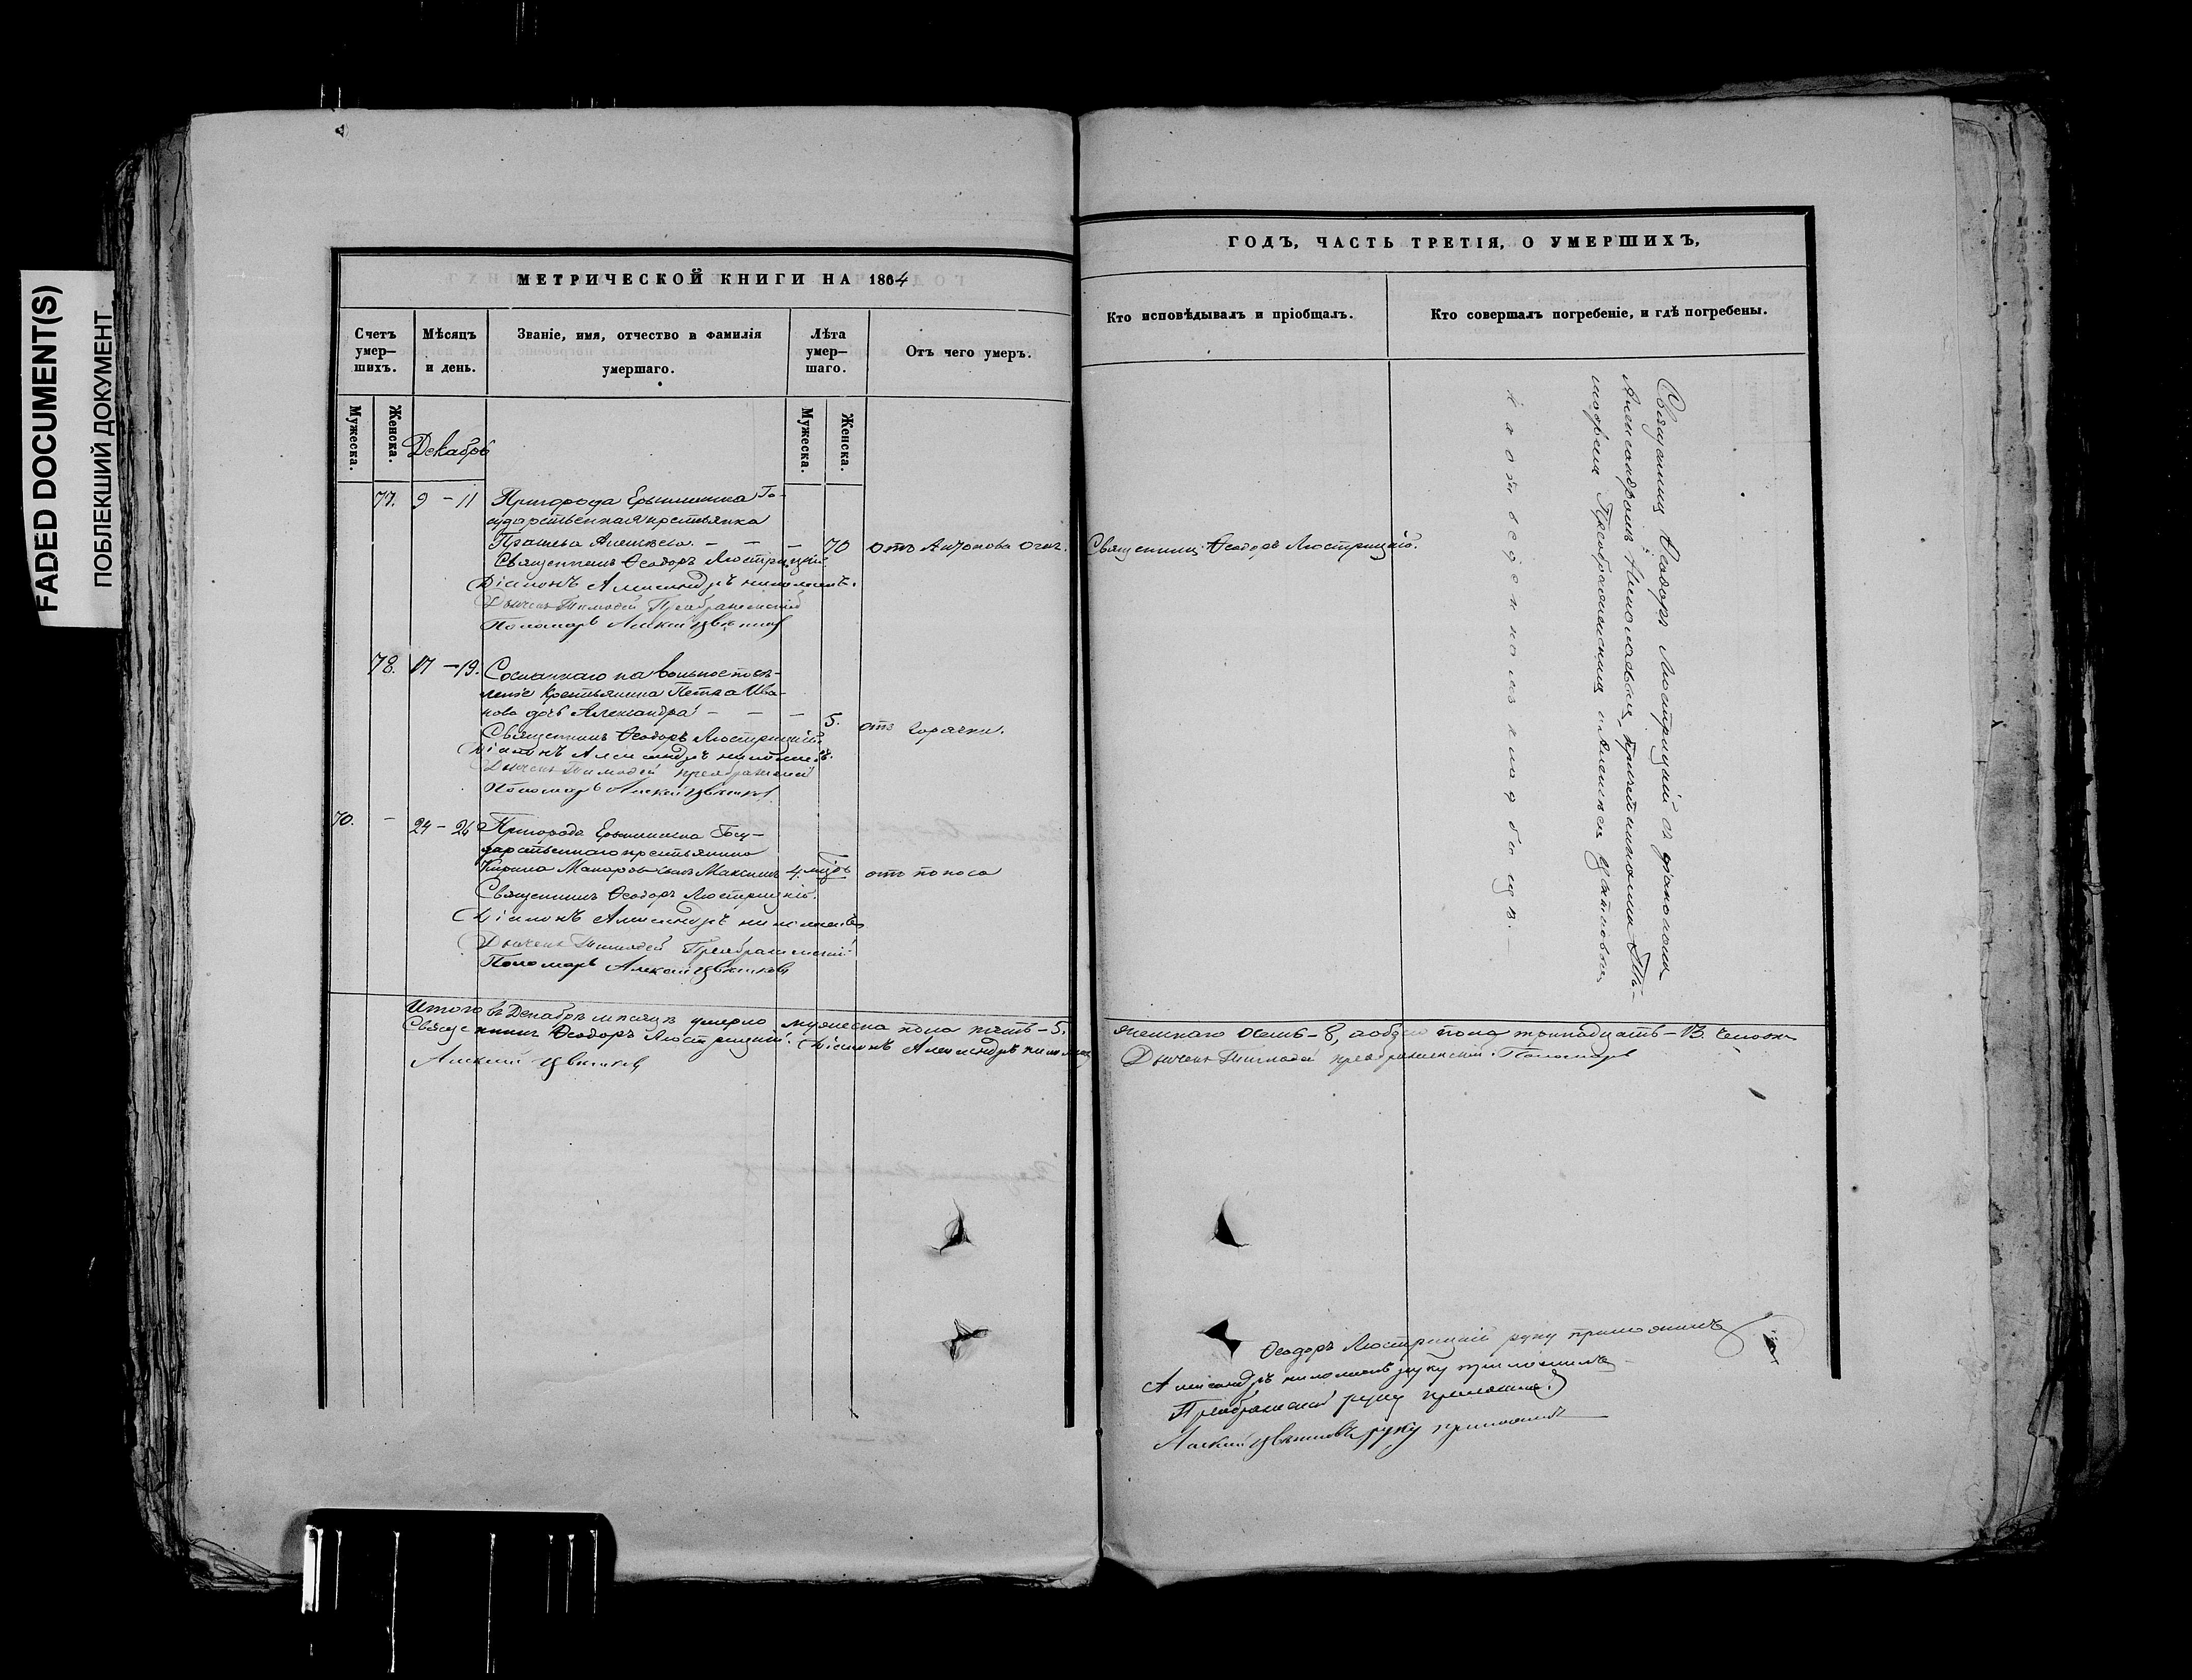 FADED DOCUMENT(S)
ПОБЛЕКШИЙ ДОКУМЕНТ
МЕТРИЧЕСКОЙ КНИГИ НА 1864
Счетъ умер—шихъ.
Мужеска.
Женска.
Мѣсяцъ и день.
Званіе, имя, отчество и фамилія умершаго.
Лѣта умер—шаго.
Мужеска.
Женска.
Отъ чего умеръ.
Декабрь
77. 9 – 11 Пригорода Ерыклинска Го-
сударственная крестьянка
Алексѣева. – – – 70 отъ Антонова огня.
Священникъ Ѳеодоръ Люстрицкій
Діаконъ Александръ
Дьячекъ Тимофей Преображенскій
Пономарь Алексій Цвѣтковъ
78. 17 – 19. Сосланнаго на вольное посе-
леніе крестьянина Петра Ива-
нова дочь Александра – – – 5. отъ горячки.
Священникъ Ѳеодоръ Люстрицкій
Діаконъ Александръ
Дьячекъ Тимофей Преображенскій
Пономарь Алексій Цвѣтковъ
70. – 24 – 26 Пригорода Ерыклинска Госу-
дарственнаго крестьянина
Кирила Макарова сынъ Максимъ 4. мѣсъ отъ поноса
Священникъ Ѳеодоръ Люстрицкій.
Діаконъ Александръ
Дьячекъ Тимофей Преображенскій
Пономарь Алексій Цвѣтковъ
Итого въ Декабрѣ мѣсяцѣ умерло мужеска пола пять – 5.
Священникъ Ѳеодоръ Люстрицкій. Діаконъ Александръ
Алексій Цвѣтковъ
ГОДЪ, ЧАСТЬ ТРЕТІЯ, О УМЕРШИХЪ,
Кто исповѣдывалъ и пріобщалъ.
Кто совершалъ погребеніе, и гдѣ погребены.
Священникъ Ѳеодоръ Люстрицкій.
Священникъ Ѳеодоръ Люстрицкій съ діакономъ
Александромъ причетниками Ти-
мофеемъ Преображенскимъ и Алексѣемъ Цвѣтковымъ
на отведенномъ кладбищѣ. –
женскаго осмь – 8, а обоего пола тринадцать – 13. человѣкъ
Дьячекъ Тимофей Преображенскій. Пономарь
Ѳеодоръ Люстрицкій руку приложилъ
Александръ руку приложилъ
Преображенскій руку приложилъ
Алексій Цвѣтковъ руку приложилъ